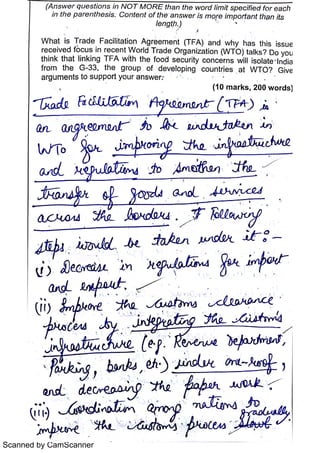 (Answer questions in NOT MORE than the word limit specified for each
in the parenthesis. Content of the answer is more important than its
length.)
What is Trade Facilitation Agreement (TFA) and why has this issue
received focus in recent World Trade Organization (WTO) talks? Do you
think that linking TFA with the food security concerns will isolate India
from the G-33, the group of developing countries at WTO? Give
arguments to support your answer.
(10 marks, 200 words)
Trade Facilitation Agreement (TFA) is
an angreement to be undertaken in
WTO for improving the infrastructure
and regulations to smoothen the
transfer of goods and services
across the borders. Following
steps would be taken under it :-
(i) Decrease in regulations for import
and export.
(ii) Improve the customs clearance
process by integrating the customs
infrastructure (e.g. Revenue Department,
Parking, banks, etc.) under one-roof,
and decreasing the paper work.
(iii) Coordination among nations to
gradually
improve the customs process
Scanned by CamScanner